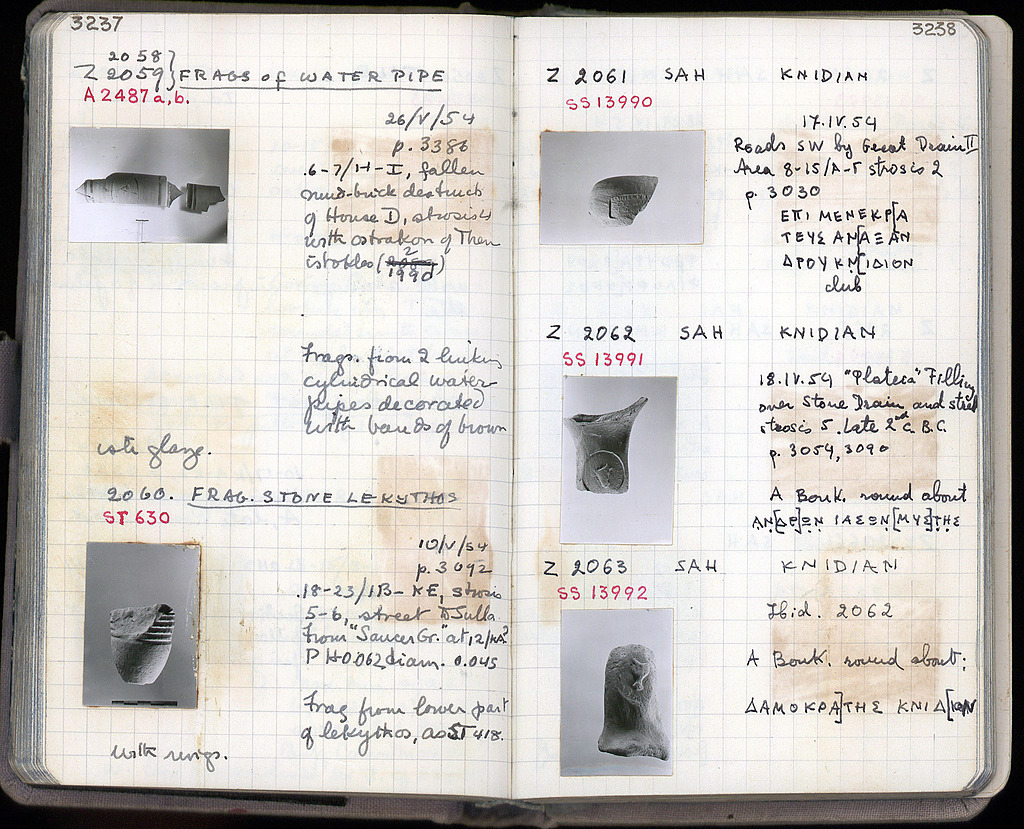 3237
2058
Z 2059 } FRAGS of WATER PIPE
A 2487 a, b.
26/V/54
p. 3386
.6-7/H-I, fallen
mud-brick destruct.
of House D, strosis 4
with ostrakon of Them
istokles (
1990)
Frags. from 2 linking
cylindrical water
pipes decorated
with bands of brown
ish glaze.
2060. FRAG. STONE LEKYTHOS
ST 630
10/V/54
p. 3092
.18-23/IB-KE, strosis
5-6, street
from "Saucer Gr." at
P H 0.062, diam. 0.045
Frag from lower part
of lekythos, as ST 418.
with rings.
3238
Z 2061 SAH KNIDIAN
SS 13990
17.IV.54
Roads SW by Great Drain II
Area 8-15/A-Γ strosis 2
p. 3030
ΕΠΙ ΜΕΝΕΚΡ[Α
ΤΕΥΣ ΑΝ[ΑΞΑΝ
ΔΡΟΥ ΚΝ[ΙΔΙΟΝ
club
Z 2062 SAH KNIDIAN
SS 13991
18.IV.54 "Plateia" Filling
over Stone Drain and street
strosis 5. Late 2nd c. B.C.
p. 3054, 3090
A Bouk. round about
ΑΝ[ΔΡ]ΩΝ ΙΑΣΩΝ[ΜΥΣ]ΤΗΣ
Z 2063 SAH KNIDIAN
SS 13992
Ibid. 2062
A Bouk. round about;
ΔΑΜΟΚΡΑ]ΤΗΣ ΚΝΙΔ[ΙΟΝ